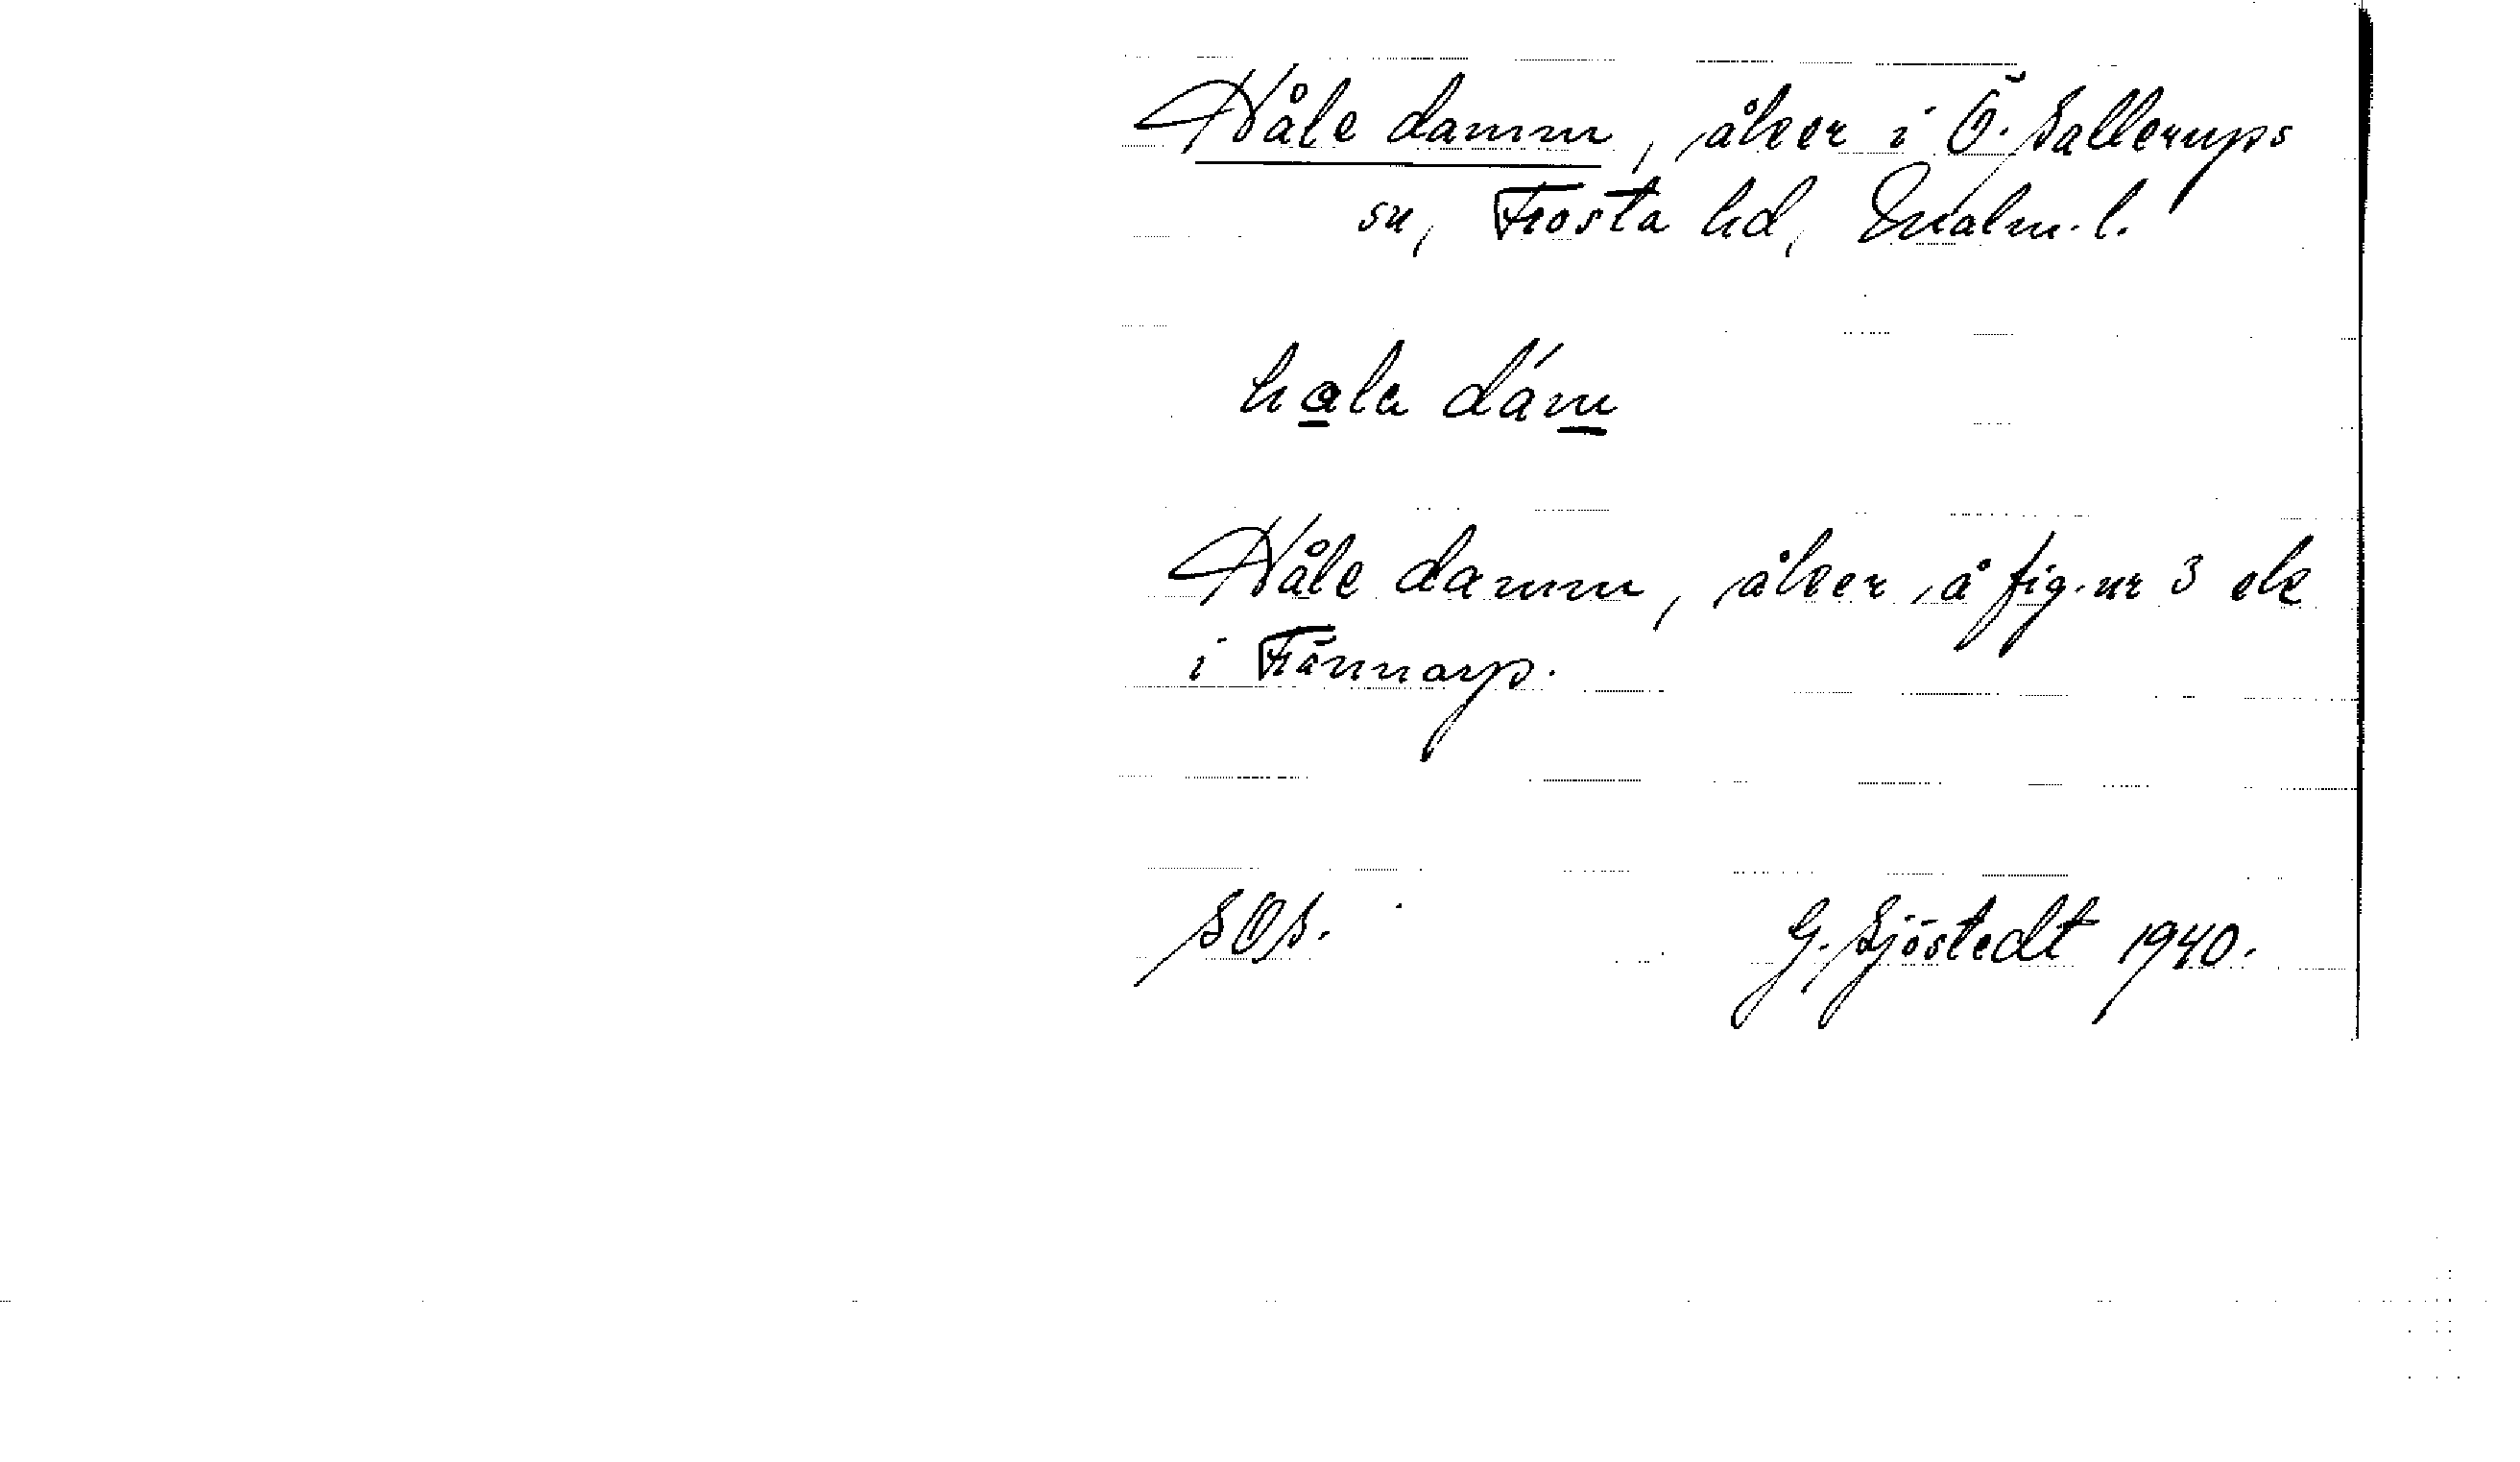 Håle damm, åker i Ö. Sallerups
sn, Frosta hd, Malm. l.
hala dám
Håle damm, åker å fig. nr 3 etc
i Fönnarp.
SOS.
G. Sjöstedt 1940.